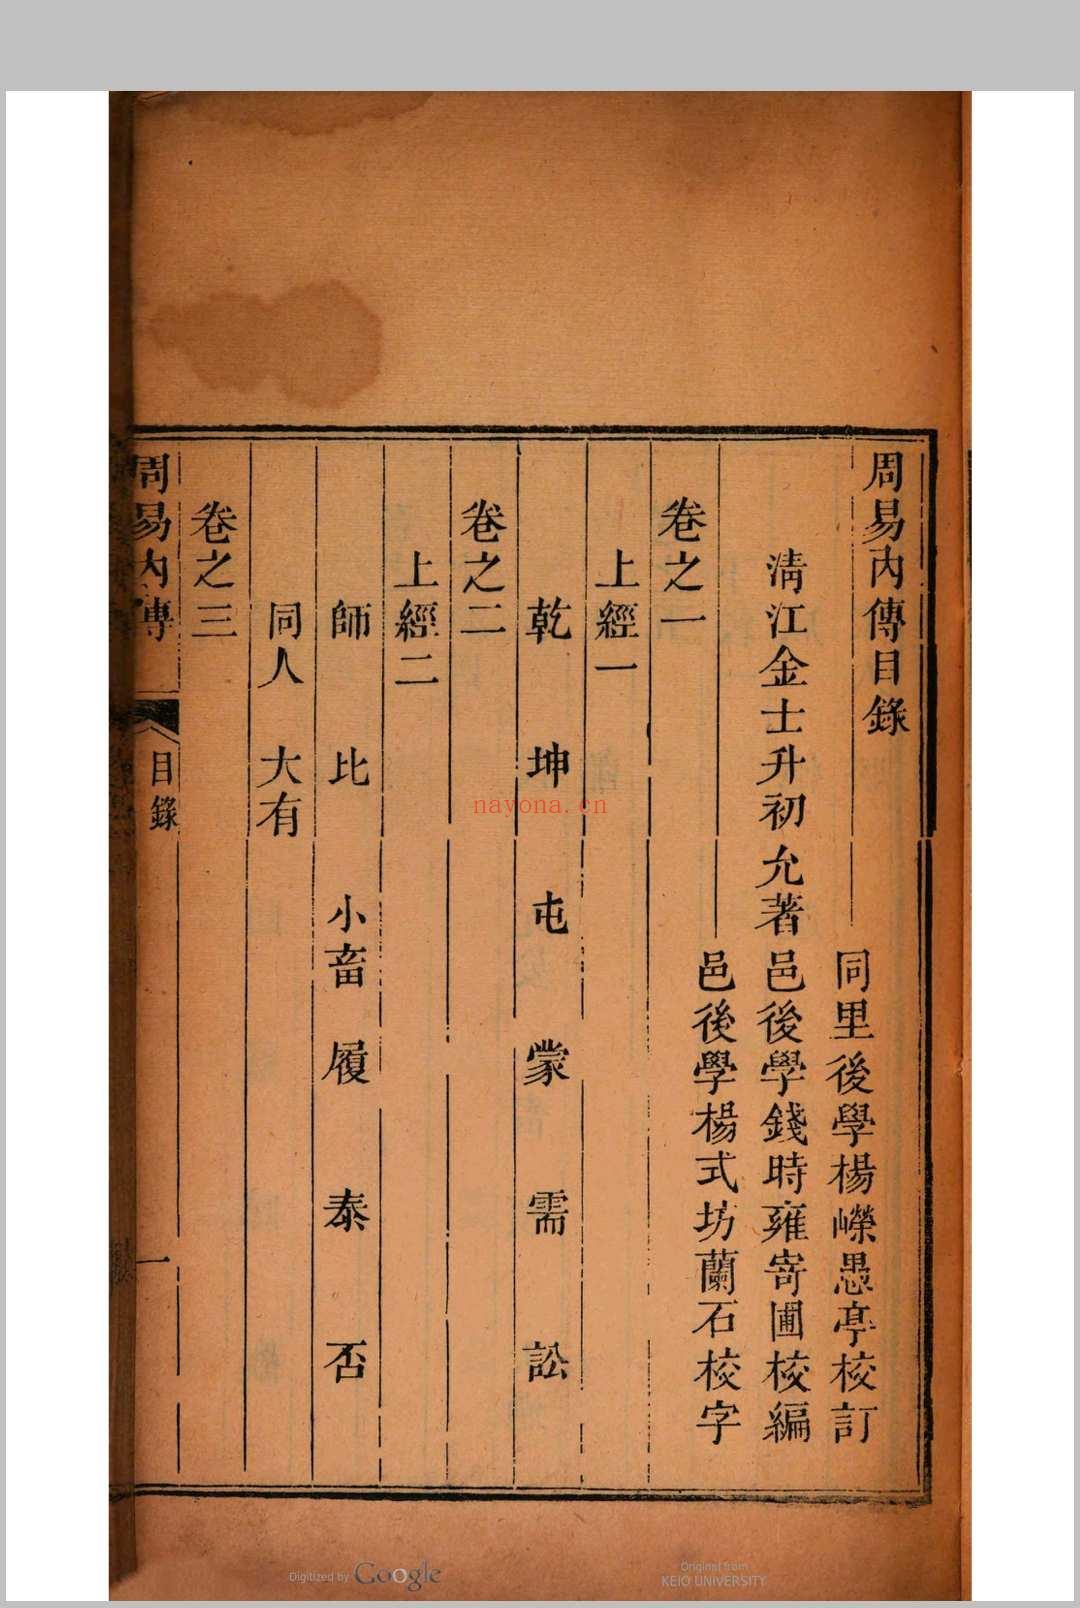 周易內傳目錄
同里後學楊嶸愚亭校訂
清江金士升初允著
邑後學錢時雍寄圃校編
邑後學楊式坊蘭石校字
卷之一
上經一
乾 坤 屯 蒙 需 訟
卷之二
上經二
師 比 小畜 履 泰 否
同人 大有
卷之三
周易內傳 目錄 一
nayona.cn
Digitized by Google
Original from
KEIO UNIVERSITY